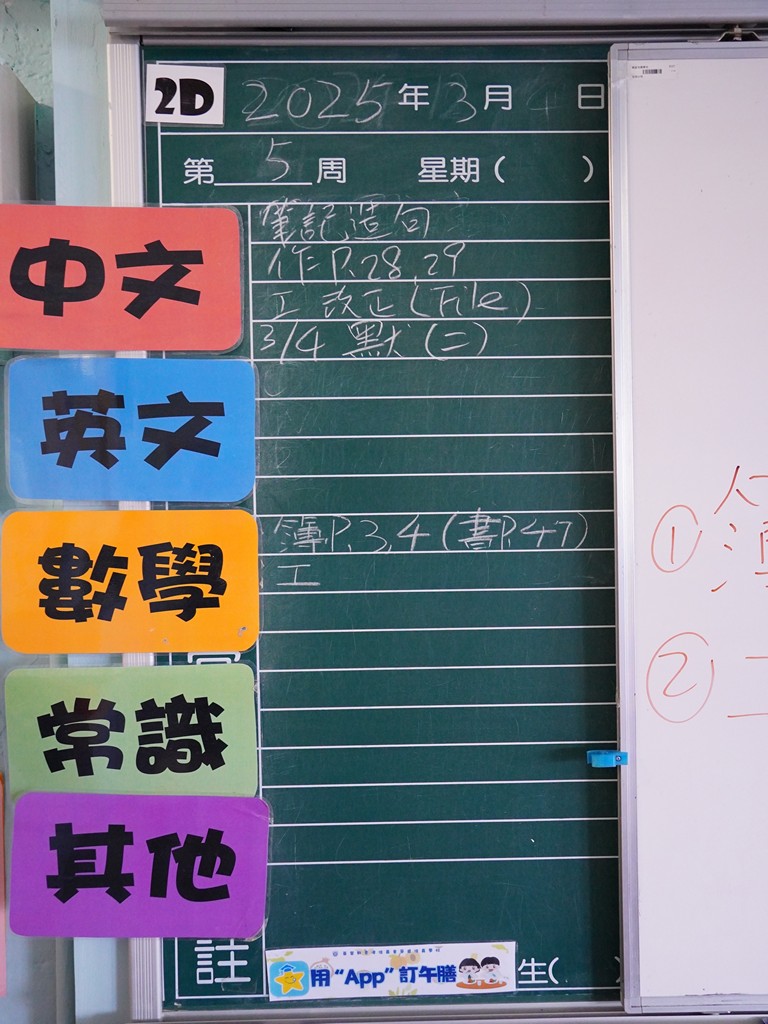 2D 2025年3月4日
第5周 星期( )
中文
筆記造句
作P.28,29
工 改正(File)
3/4 默(二)
英文
數學
簿P.3,4(書P.47)
工
常識
其他
註
用“App”訂午膳
生(
①
人
②